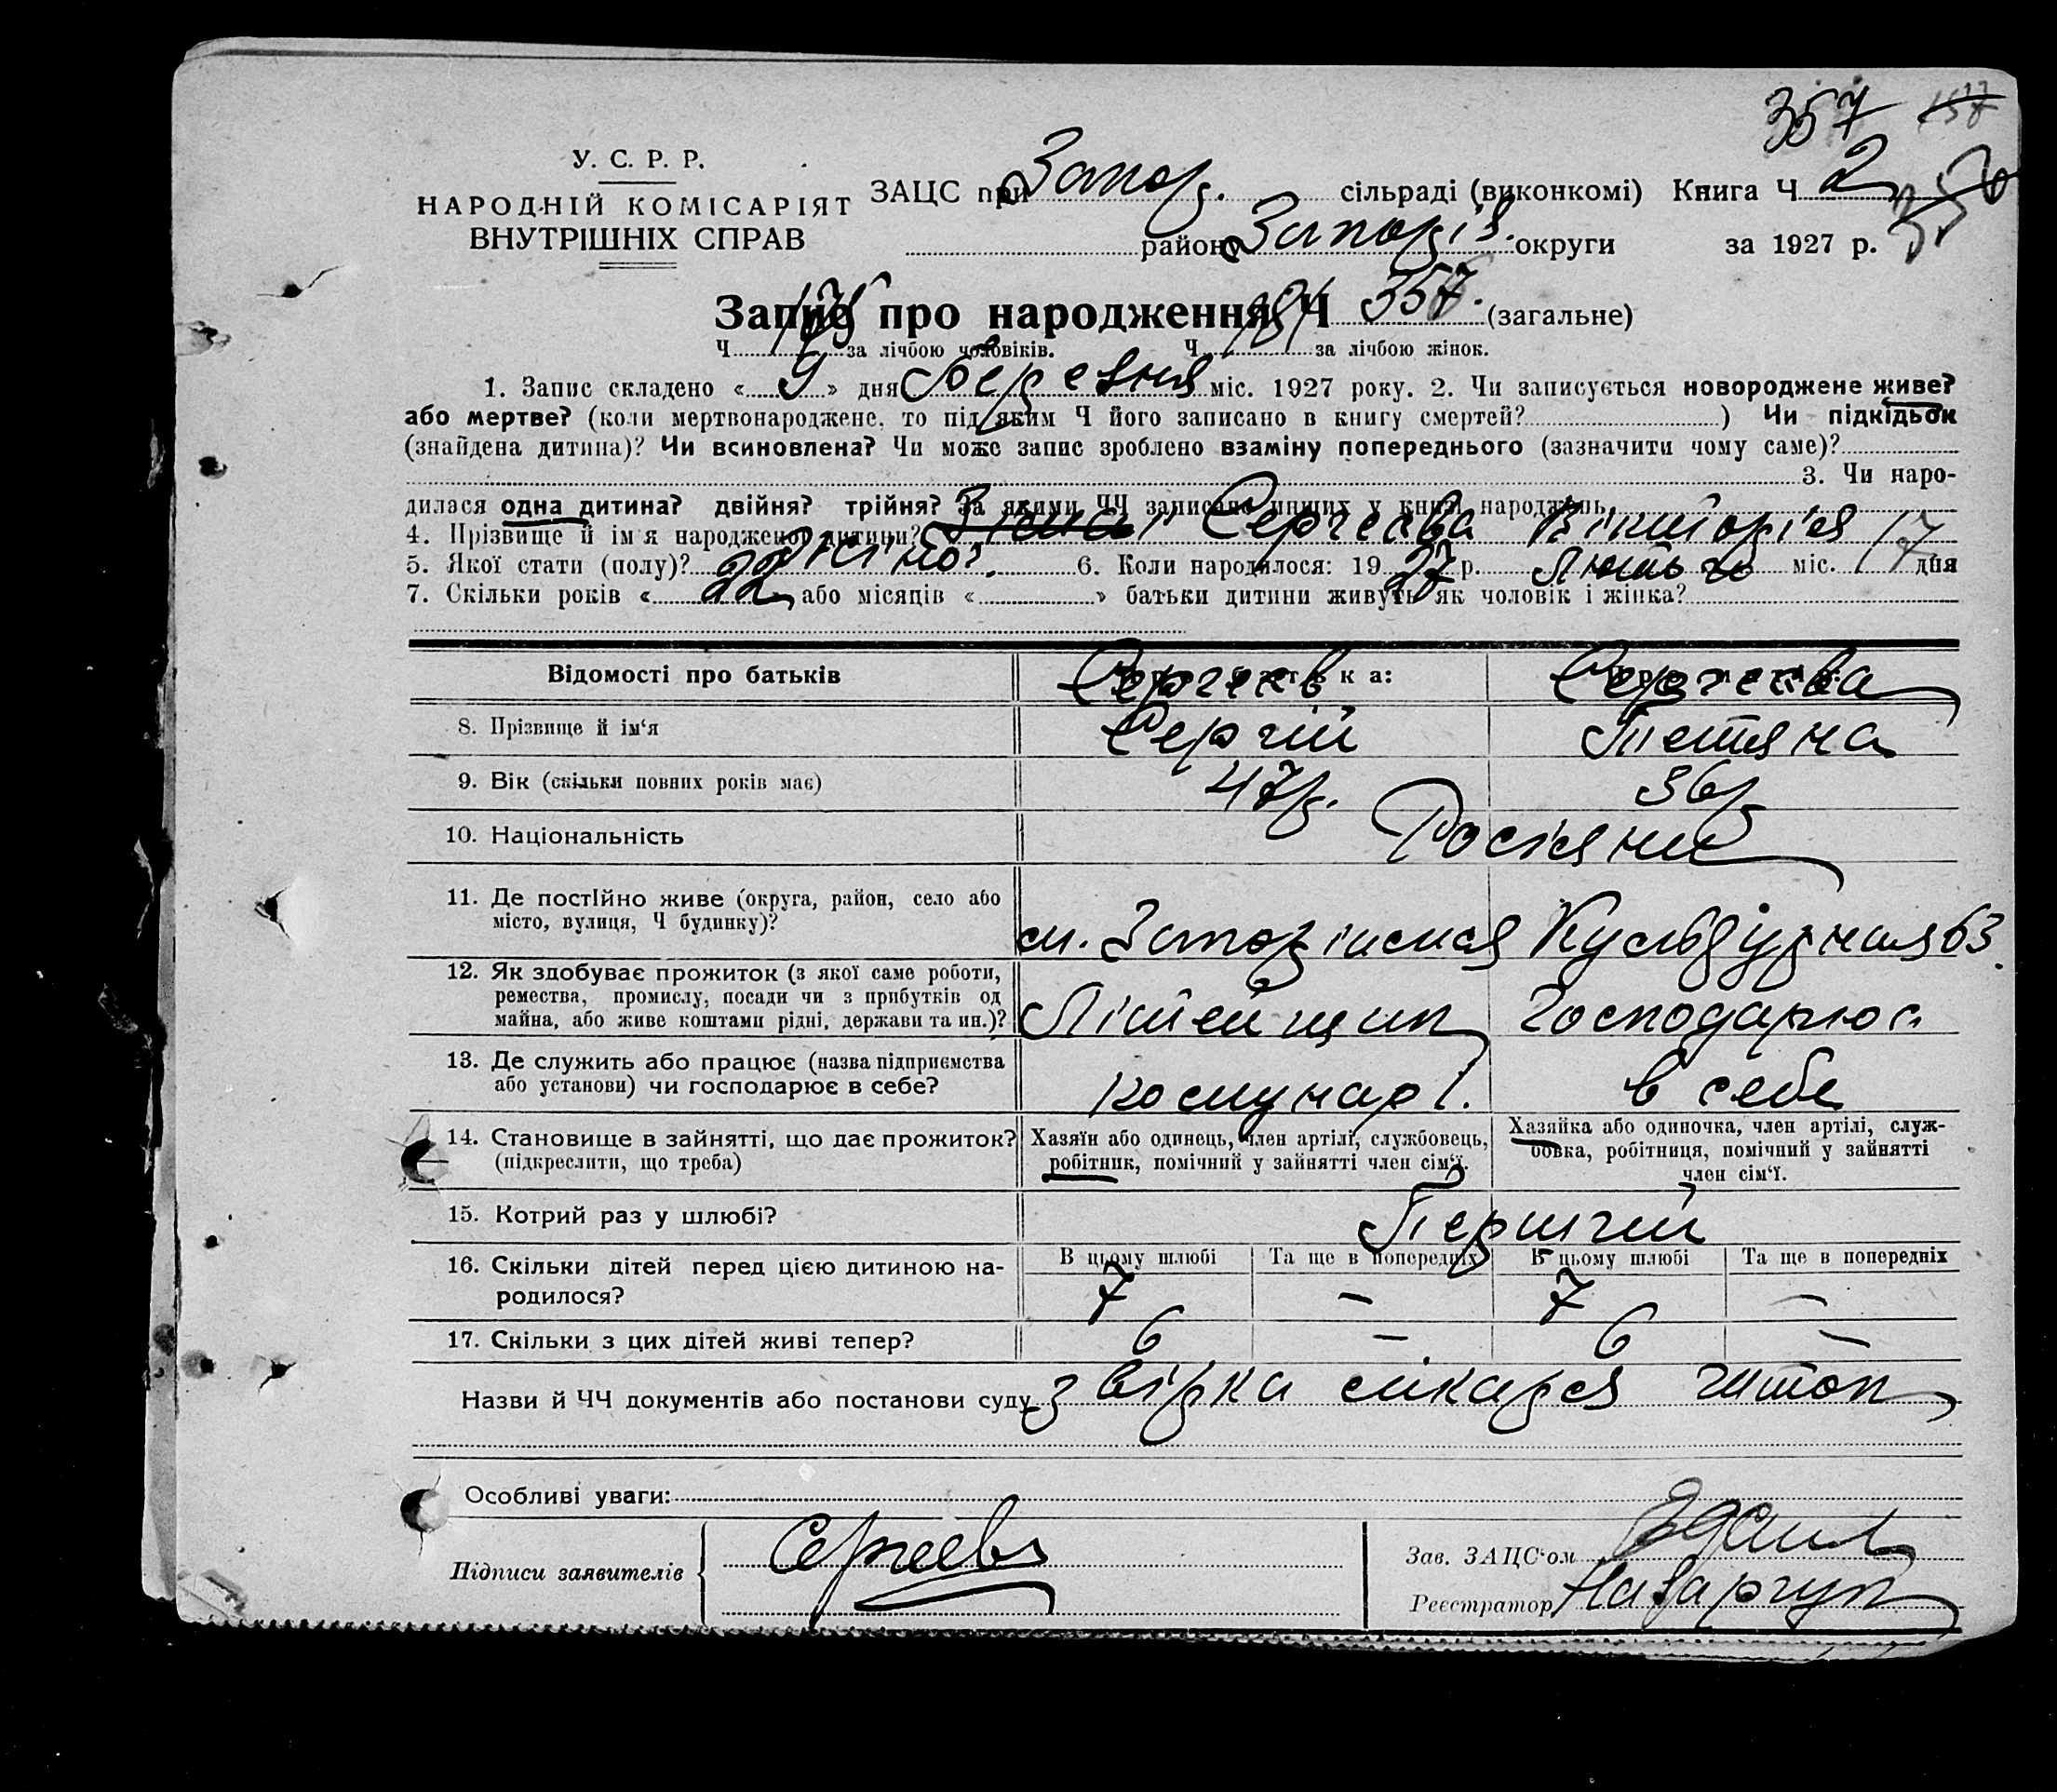 357
У. С. Р. Р.
НАРОДНІЙ КОМІСАРІЯТ
ВНУТРІШНІХ СПРАВ
ЗАЦС при Запор. сільраді (виконкомі) Книга Ч 2
району Запоріз. округи за 1927 р.
Запис про народження Ч 357 (загальне)
Ч за лічбою чоловіків. Ч за лічбою жінок.
1. Запис складено « 9 » дня березня міс. 1927 року. 2. Чи записується новороджене живе?
або мертве? (коли мертвонароджене, то під яким Ч його записано в книгу смертей? ) Чи підкідьок
(знайдена дитина)? Чи всиновлена? Чи може запис зроблено взаміну попереднього (зазначити чому саме)?
3. Чи наро-
дилася одна дитина? двійня? трійня? За якими ЧЧ записано инших у книзі народжень
4. Прізвище й ім'я народженої дитини? Сергеєва Вікторія
5. Якої стати (полу)? жіно. 6. Коли народилося: 1927 р. Лютого міс. 17 дня
7. Скільки років « 22 або місяців « » батьки дитини живуть як чоловік і жінка?
Відомості про батьків Сергеєв Сергеєва
8. Прізвище й ім'я Сергій Тетяна
9. Вік (скільки повних років має) 47р. 36р
10. Національність Росіяни
11. Де постІйно живе (округа, район, село або
місто, вулиця, Ч будинку)?
м. Запоріжжя 63.
12. Як здобуває прожиток (з якої саме роботи,
ремества, промислу, посади чи з прибутків од
майна, або живе коштами рідні, держави та ин.)?
Літейщик Господарює
13. Де служить або працює (назва підприємства
або установи) чи господарює в себе?
Комунар 1. в себе
14. Становище в зайнятті, що дає прожиток?
(підкреслити, що треба)
Хазяїн або одинець, член артілі, службовець,
робітник, помічний у зайнятті член сім'ї.
Хазяйка або одиночка, член артілі, служ-
бовка, робітниця, помічний у зайнятті
член сім'ї.
15. Котрий раз у шлюбі? Перший
16. Скільки дітей перед цією дитиною на-
родилося?
В цьому шлюбі Та ще в попередніх В цьому шлюбі Та ще в попередніх
7 — 7 —
17. Скільки з цих дітей живі тепер? 6 — 6 —
Назви й ЧЧ документів або постанови суду звірка лікаря
Особливі уваги:
Підписи заявителів Сергеев
Зав. ЗАЦС'ом
Реєстратор Назарчук